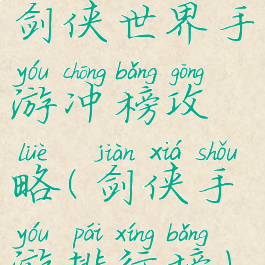 剑侠世界手
yóu chōng bǎng gōng
游冲榜攻
lüè jiàn xiá shǒu
略(剑侠手
yóu pái xíng bǎng
游排行榜)